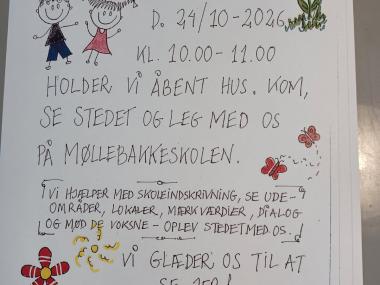 D. 24/10-2026
KL. 10.00-11.00
HOLDER VI ÅBENT HUS. KOM,
SE STEDET OG LEG MED OS
PÅ MØLLEBAKKESKOLEN.
VI HJÆLPER MED SKOLEINDSKRIVNING, SE UDE-
OMRÅDER, LOKALER, MÆRK VÆRDIER, DIALOG
OG MØD DE VOKSNE - OPLEV STEDET MED OS.
VI GLÆDER OS TIL AT
SE JER!